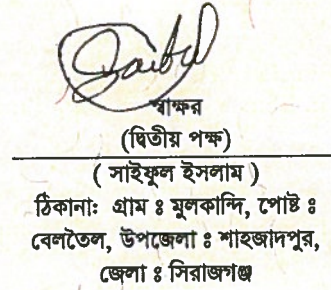 স্বাক্ষর
(দ্বিতীয় পক্ষ)
( সাইফুল ইসলাম )
ঠিকানাঃ গ্রাম ঃ মুলকান্দি, পোষ্ট ঃ
বেলতৈল, উপজেলা ঃ শাহজাদপুর,
জেলা ঃ সিরাজগঞ্জ